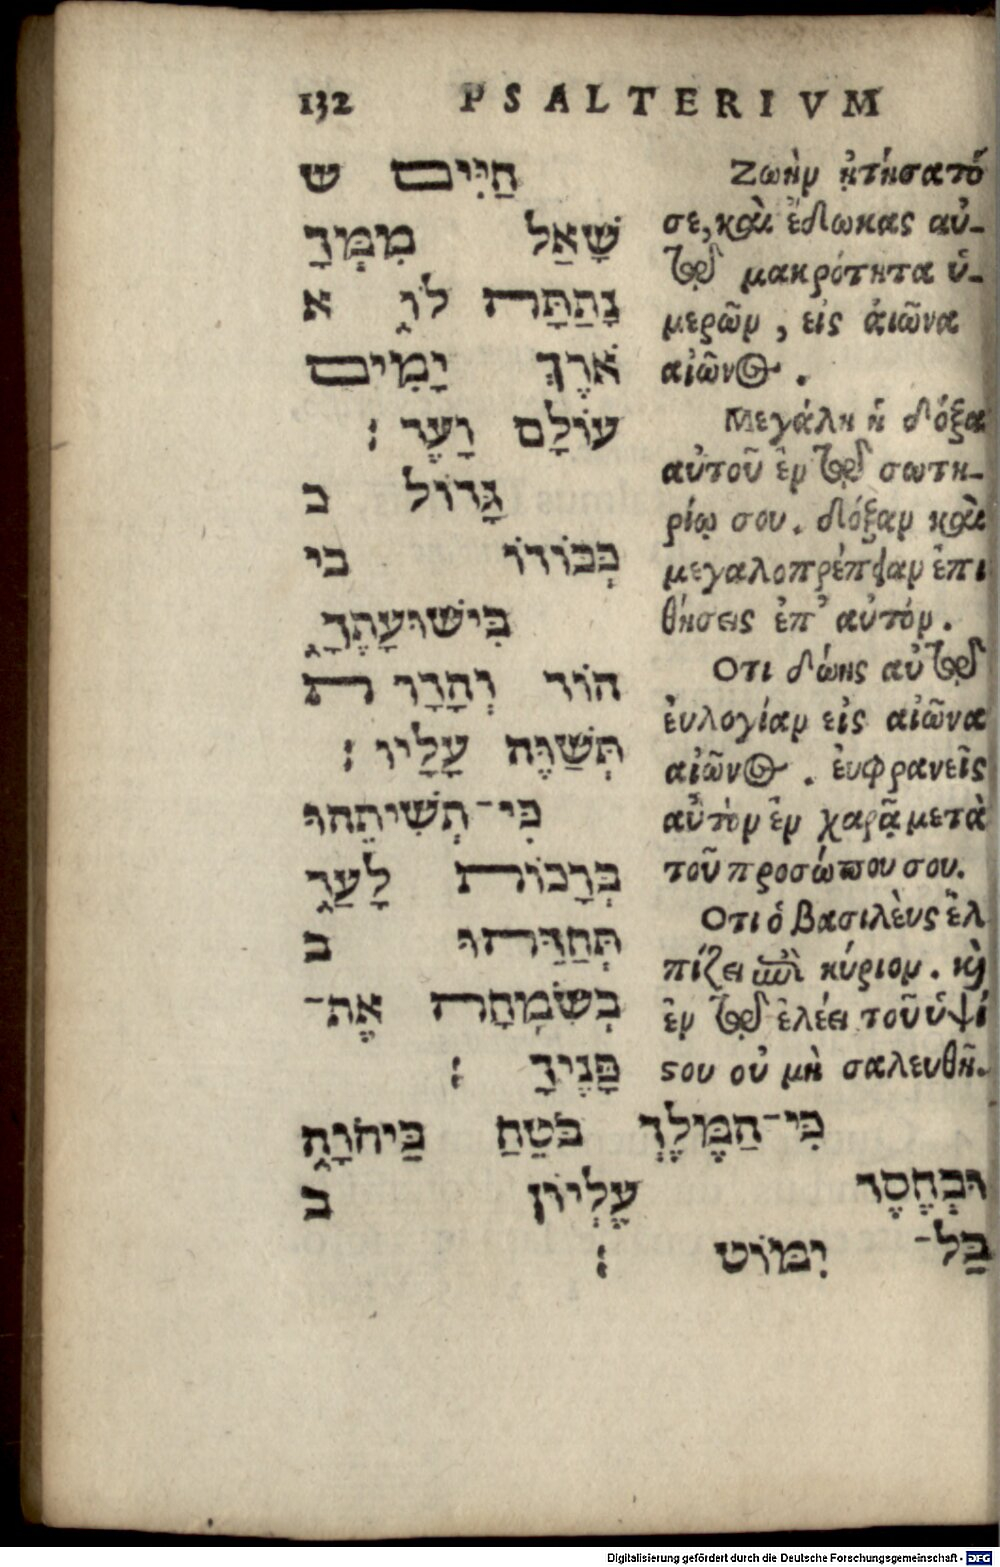 132 PSALTERIVM
חַיִּים ש
שָׁאַל מִמְּךָ
נָתַתָּה לּוֹ א
אֹרֶךְ יָמִים
עוֹלָם וָעֶד׃
גָּדוֹל כ
כְּבוֹדוֹ בי
בִּישׁוּעָתֶךָ
הוֹד וְהָדָר ת
תְּשַׁוֶּה עָלָיו׃
כִּי־תְשִׁיתֵהוּ
בְּרָכוֹת לָעַד
תְּחַדֵּהוּ ב
בְשִׂמְחָה אֶת־
פָּנֶיךָ׃
כִּי־הַמֶּלֶךְ בֹּטֵחַ בַּיהוָה
וּבְחֶסֶד עֶלְיוֹן ב
בַּל־ יִמּוֹט׃
Ζωὴν ᾐτήσατό
σε, καὶ ἔδωκας αὐ-
τῷ μακρότητα ἡ-
μερῶν, εἰς ἀιῶνα
αἰῶνος.
Μεγάλη ἡ δόξα
αὐτοῦ ἐν τῷ σωτη-
ρίῳ σου. δόξαν καὶ
μεγαλοπρέπειαν ἐπι
θήσεις ἐπ' αὐτόν.
Οτι δώης αὐτῷ
ἐυλογίαν εἰς αἰῶνα
αἰῶνος. ἐυφρανεῖς
αὐτὸν ἐν χαρᾷ μετὰ
τοῦ προσώπου σου.
Οτι ὁ βασιλὲυς ἐλ
πίζει ἐπὶ κύριον. καὶ
ἐν τῷ ἐλέει τοῦ ὑψί
στου οὐ μὴ σαλευθῇ.
Digitalisierung gefördert durch die Deutsche Forschungsgemeinschaft - DFG